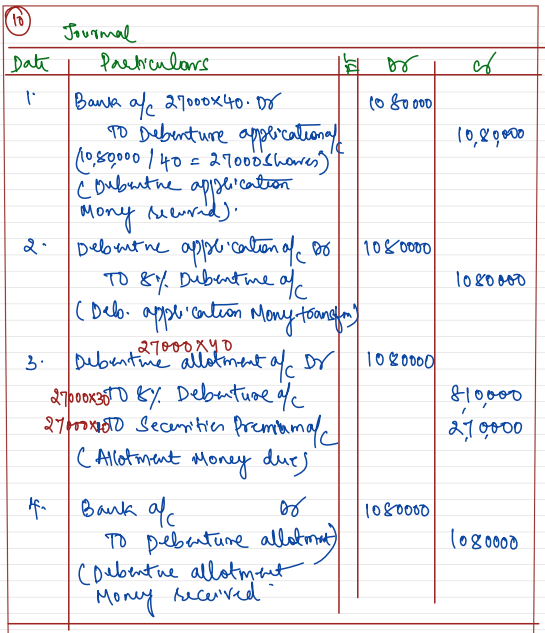 10
Journal
Date Particulars LF Dr Cr
1. Bank a/c 27000x40. Dr 1080000
To Debenture application a/c 10,80,000
(10,80,000 / 40 = 27000 shares)
(Debentne application
Money received).
2. Debentne application a/c Dr 1080000
To 8% Debentne a/c 1080000
(Deb. application Money transfer)
27000x40
3. Debentne allotment a/c Dr 1080000
27000x30 To 8% Debenture a/c 8,10,000
27000x10 To Securities Premium a/c 2,70,000
(Allotment Money due)
4. Bank a/c Dr 1080000
To Debenture allotment) 1080000
(Debentne allotment
Money received